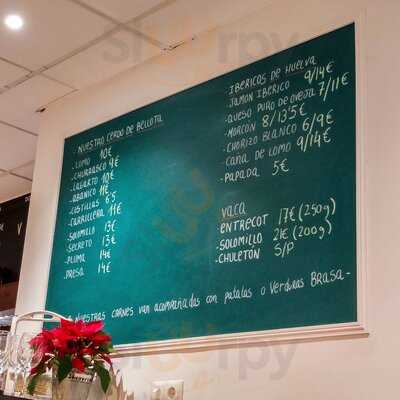 - NUESTRO CERDO DE BELLOTA
- LOMO 10€
- CHURRASCO 9€
- LAGARTO 10€
- ABANICO 11€
- COSTILLAS 6'5
- CARRILLERA 11€
- SOLOMILLO 13€
- SECRETO 13€
- PLUMA 14€
- PRESA 14€
IBERICOS DE HUELVA
- JAMON IBERICO 9/14€
- QUESO PURO DE OVEJA 7/11€
- MORCÓN 8/13'5€
- CHORIZO BLANCO 6/9€
- CAÑA DE LOMO 9/14€
- PAPADA 5€
VACA
- ENTRECOT 17€ (250g)
- SOLOMILLO 21€ (200g)
- CHULETÓN S/P
NUESTRAS CARNES van acompañadas con patatas o Verduras BRASA -
sirurpy